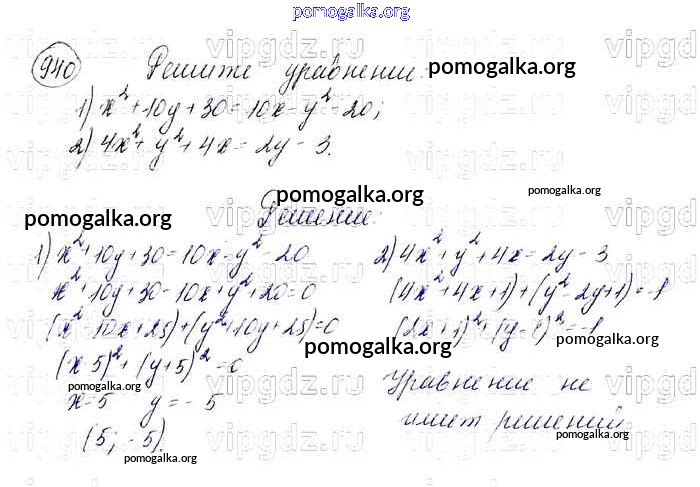 pomogalka.org
940 Решите уравнение: pomogalka.org
1) x²+10y+30=10x-y²-20;
2) 4x²+y²+4x=2y-3.
pomogalka.org
pomogalka.org
pomogalka.org
Решение:
1) x²+10y+30=10x-y²-20
x²+10y+30-10x+y²+20=0
(x²-10x+25)+(y²+10y+25)=0
pomogalka.org
(x-5)²+(y+5)²=0
pomogalka.org
x=5 y=-5
(5; -5).
pomogalka.org
2) 4x²+y²+4x=2y-3
(4x²+4x+1)+(y²-2y+1)=-1
(2x+1)²+(y-1)²=-1
pomogalka.org
Уравнение не
имеет решений
pomogalka.org
vipgdz.ru